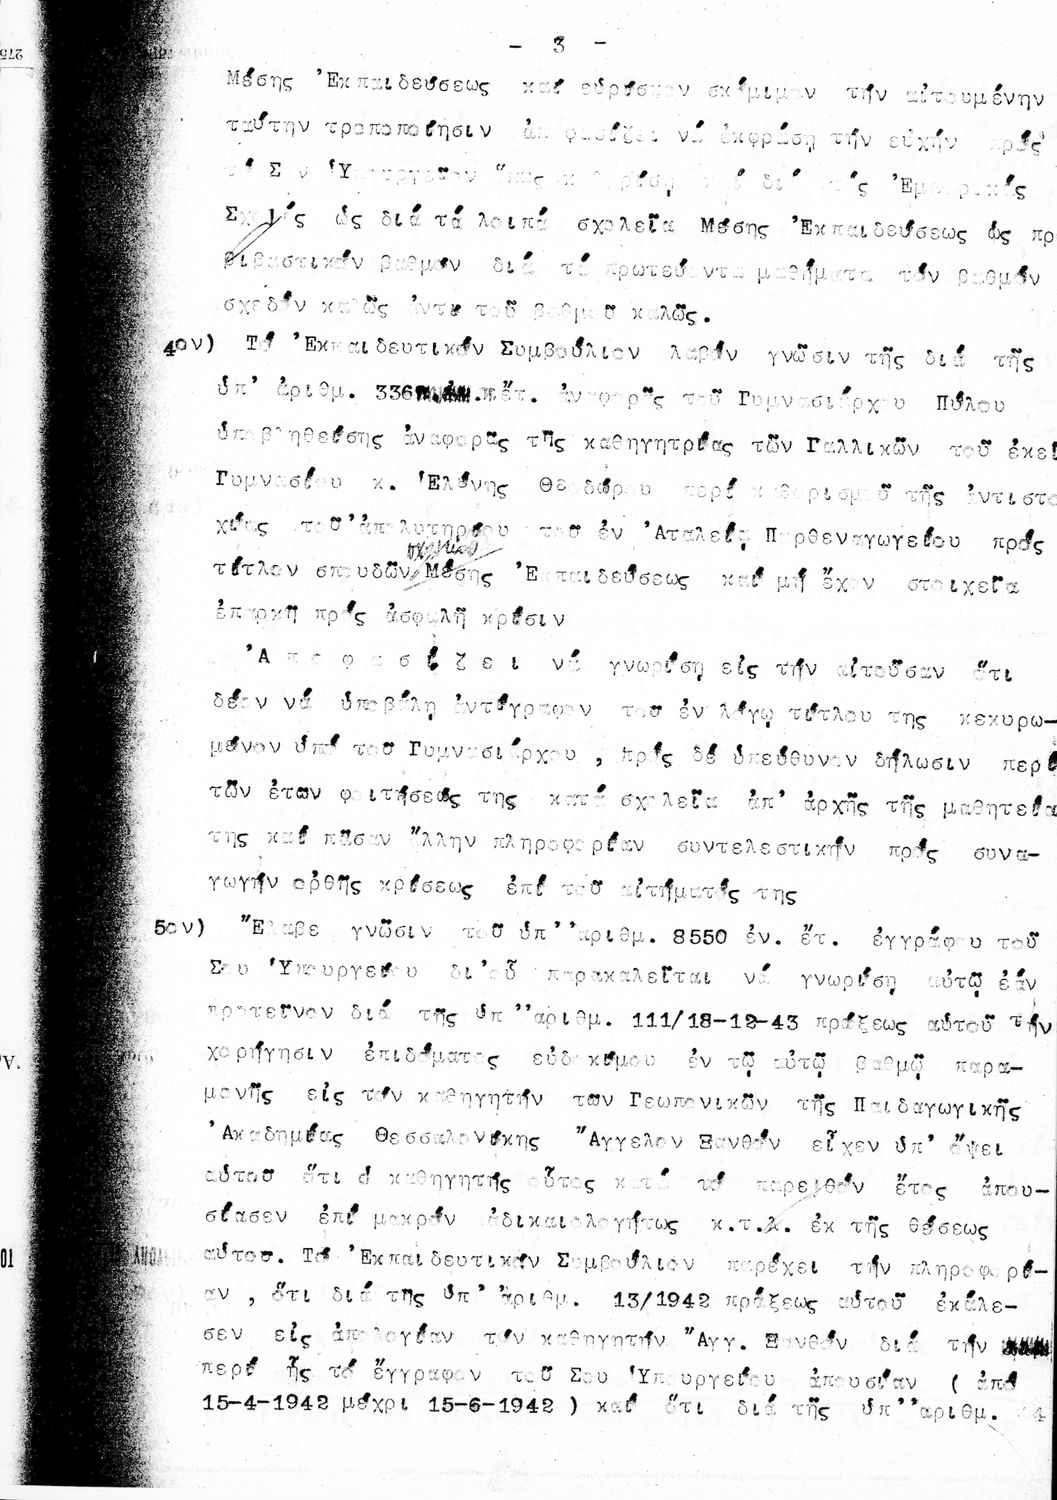 - 3 -
Μέσης Ἐκπαιδεύσεως καί εὑρίσκον σκόμιμον τήν αἰτουμένην
ταύτην τροποποίησιν ἀποφασίζει νά ἐκφράσῃ τήν εὐχήν πρός
τό Σ ν Ὑπουργεῖον ὅπως κ θορίσῃ καί διά τάς Ἐμπορικάς
Σχολάς ὡς διά τά λοιπά σχολεῖα Μέσης Ἐκπαιδεύσεως ὡς πρ
βιβαστικόν βαθμόν διά τά πρωτεύοντα μαθήματα τόν βαθμόν
σχεδόν καλῶς ἀντί τοῦ βαθμοῦ καλῶς.
4ον) Τό Ἐκπαιδευτικόν Συμβούλιον λαβόν γνῶσιν τῆς διά τῆς
ὑπ' ἀριθμ. 336 .ἔτ. ἀναφορᾶς τοῦ Γυμνασιάρχου Πύλου
ὑποβληθείσης ἀναφορᾶς τῆς καθηγητρίας τῶν Γαλλικῶν τοῦ ἐκεῖ
Γυμνασίου κ. Ἑλένης Θεοδώρου περί καθορισμοῦ τῆς ἀντιστο
χίας τοῦ ἀπολυτηρίου τοῦ ἐν Ἀταλείᾳ Παρθεναγωγείου πρός
σχολείου
τίτλον σπουδῶν Μέσης Ἐκπαιδεύσεως καί μή ἔχον στοιχεῖα
ἐπαρκῆ πρός ἀσφαλῆ κρίσιν
Ἀ π ο φ α σ ί ζ ε ι νά γνωρίσῃ εἰς τήν αἰτοῦσαν ὅτι
δέον νά ὑποβάλῃ ἀντίγραφον τοῦ ἐν λόγῳ τίτλου της κεκυρω-
μένον ὑπό τοῦ Γυμνασιάρχου , πρός δέ ὑπεύθυνον δήλωσιν περί
τῶν ἐτῶν φοιτήσεώς της κατά σχολεῖα ἀπ' ἀρχῆς τῆς μαθητεία
της καί πᾶσαν ἄλλην πληροφορίαν συντελεστικήν πρός συνα-
γωγήν ὀρθῆς κρίσεως ἐπί τοῦ αἰτήματός της
5ον) Ἔλαβε γνῶσιν τοῦ ὑπ' ἀριθμ. 8550 ἐν. ἔτ. ἐγγράφου τοῦ
Σου Ὑπουργείου δι'οὗ παρακαλεῖται νά γνωρίσῃ αὐτῷ ἐάν
προτεῖνον διά τῆς ὑπ ''αριθμ. 111/18-12-43 πράξεως αὐτοῦ τήν
χορήγησιν ἐπιδόματος εὐδοκίμου ἐν τῷ αὐτῷ βαθμῷ παρα-
μονῆς εἰς τόν καθηγητήν των Γεωπονικῶν τῆς Παιδαγωγικῆς
Ἀκαδημίας Θεσσαλονίκης Ἄγγελον Ξανθόν εἶχεν ὑπ' ὄψει
αὐτοῦ ὅτι ὁ καθηγητής οὗτος κατά τό παρελθόν ἔτος ἀπου-
σίασεν ἐπί μακρόν ἀδικαιολογήτως κ.τ.λ. ἐκ τῆς θέσεως
αὐτοῦ. Τό Ἐκπαιδευτικόν Συμβούλιον παρέχει τήν πληροφορί-
αν , ὅτι διά τῆς ὑπ' ἀριθμ. 13/1942 πράξεως αὐτοῦ ἐκάλε-
σεν εἰς ἀπολογίαν τόν καθηγητήν Ἄγγ. Ξανθόν διά τήν
περί ἧς τό ἔγγραφον τοῦ Σου Ὑπουργείου ἀπουσίαν ( ἀπό
15-4-1942 μέχρι 15-6-1942 ) καί ὅτι διά τῆς ὑπ''αριθμ. 4